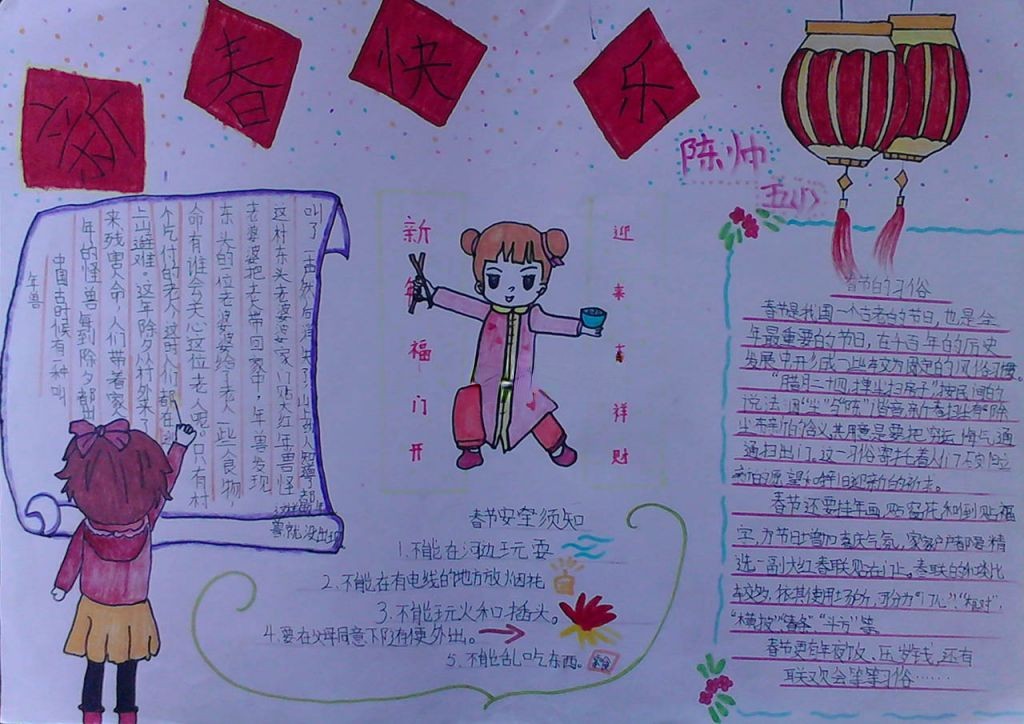 新
春
快
乐
陈帅
五(1)
年兽
中国古时候有一种叫
年的怪兽 每到除夕都出
来残害人命,人们带着家人
上山避难。这年除夕从村外来了
个乞付的老人,这时人们都在
命有谁会关心这位老人呢。只有村
东头的一位老婆婆给了老人一些食物,
老婆婆把老人带回家中,年兽发现
这村东头老婆婆家门贴大红年兽怪
叫了一声然后
兽就没出现
新年福门开
迎来 祥财
春节安全须知
1.不能在河边玩耍
2.不能在有电线的地方放烟花
3.不能玩火和插头。
4.要在父母同意下才有便外出。
5.不能乱吃东西。
春节的习俗
春节是我国一个古老的节日,也是全
年最重要的节日,在千百年的历史
发展中形成了一些较为固定的风俗习惯。
“腊月二十四,掸尘扫房子”按民间的
说法:因“尘”与“陈”谐音,新春扫尘有“除
尘布新”的含义,其用意是要把穷运、悔气,通
通扫出门。这一习俗寄托着人们破旧立
新的愿望和辞旧迎新的祈求。
春节还要挂年画,贴窗花和到贴福
字,为节日增加喜庆气氛,家家户户都要精
选一副大红春联贴在门上。春联的种类比
较多,依其使用场所,可分为“门心”、“框对”、
“横披”“春条”“斗方”等。
春节更有年夜饭、压岁钱,还有
联欢会等等习俗……